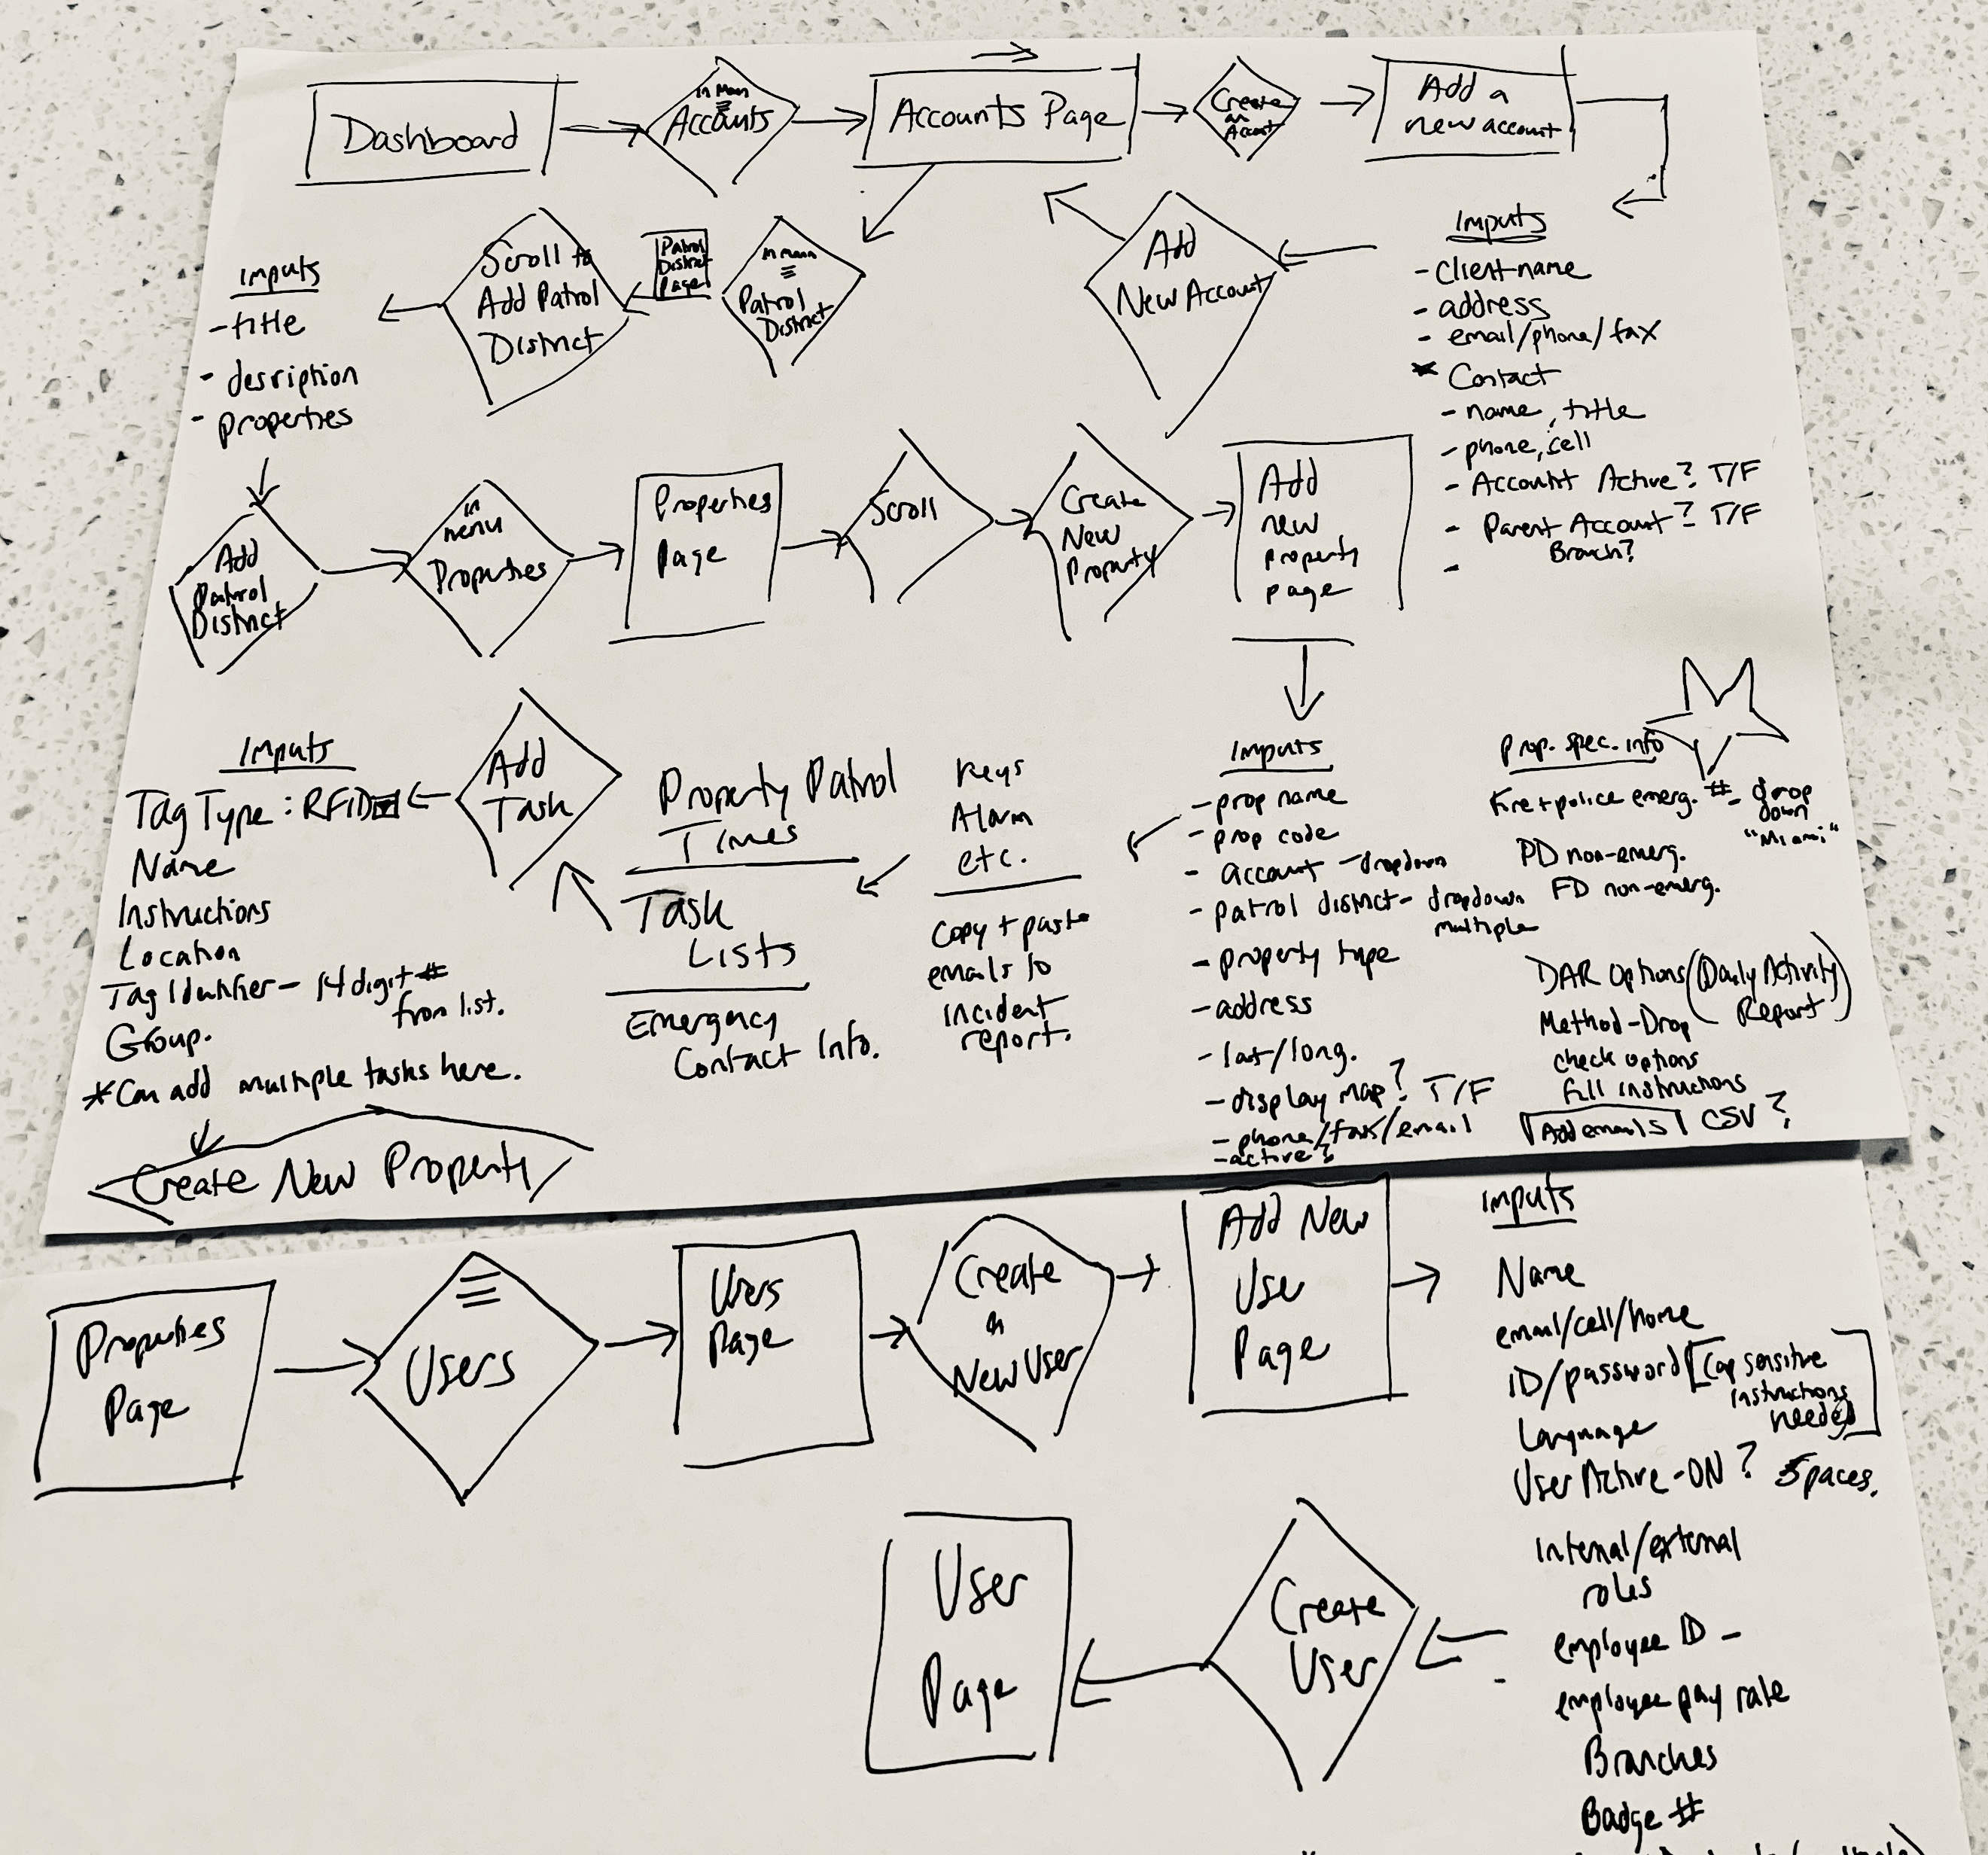 Dashboard
in Menu
Accounts
Accounts Page
Create
an
Account
Add a
new account
Inputs
- Client name
- address
- email/phone/fax
* Contact
- name, title
- phone, cell
- Account Active? T/F
- Parent Account? T/F
Branch?
-
Add
New Account
in menu
Patrol
District
Patrol
District
Page
Scroll to
Add Patrol
District
Inputs
- title
- desription
- properties
Add
Patrol
District
in
menu
Properties
Properties
Page
Scroll
Create
New
Property
Add
new
property
page
Inputs
- prop name
- prop code
- account - dropdown
- patrol district - dropdown
multiple
- property type
- address
- lat/long.
- display map? T/F
- phone/fax/email
- active?
Prop. spec. info
Fire + police emerg. # - drop
down
"Miami"
PD non-emerg.
FD non-emerg.
DAR Options (Daily Activity
Report)
Method - Drop
check options
fill instructions
Add emails CSV?
Keys
Alarm
etc.
Copy + paste
emails to
incident
report.
Property Patrol
Times
Task
Lists
Emergency
Contact Info.
Add
Task
Inputs
Tag Type: RFID
Name
Instructions
Location
Tag Identifier - 14 digit #
from list.
Group.
*Can add multiple tasks here.
Create New Property
Properties
Page
Users
Users
Page
Create
a
New User
Add New
Use
Page
Inputs
Name
email/cell/home
ID/password [Cap sensitive
instructions
needed]
Language
User Active - ON? Spaces.
Internal/external
roles
employee ID -
employee pay rate
Branches
Badge #
Create
User
User
Page